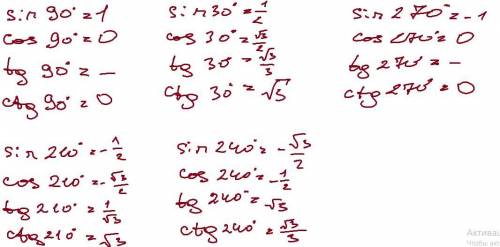 sin 90° = 1
cos 90° = 0
tg 90° = –
ctg 90° = 0
sin 30° = 1/2
cos 30° = √3/2
tg 30° = √3/3
ctg 30° = √3
sin 270° = -1
cos 270° = 0
tg 270° = –
ctg 270° = 0
sin 210° = -1/2
cos 210° = -√3/2
tg 210° = 1/√3
ctg 210° = √3
sin 240° = -√3/2
cos 240° = -1/2
tg 240° = √3
ctg 240° = √3/3
Актива
Чтобы ак